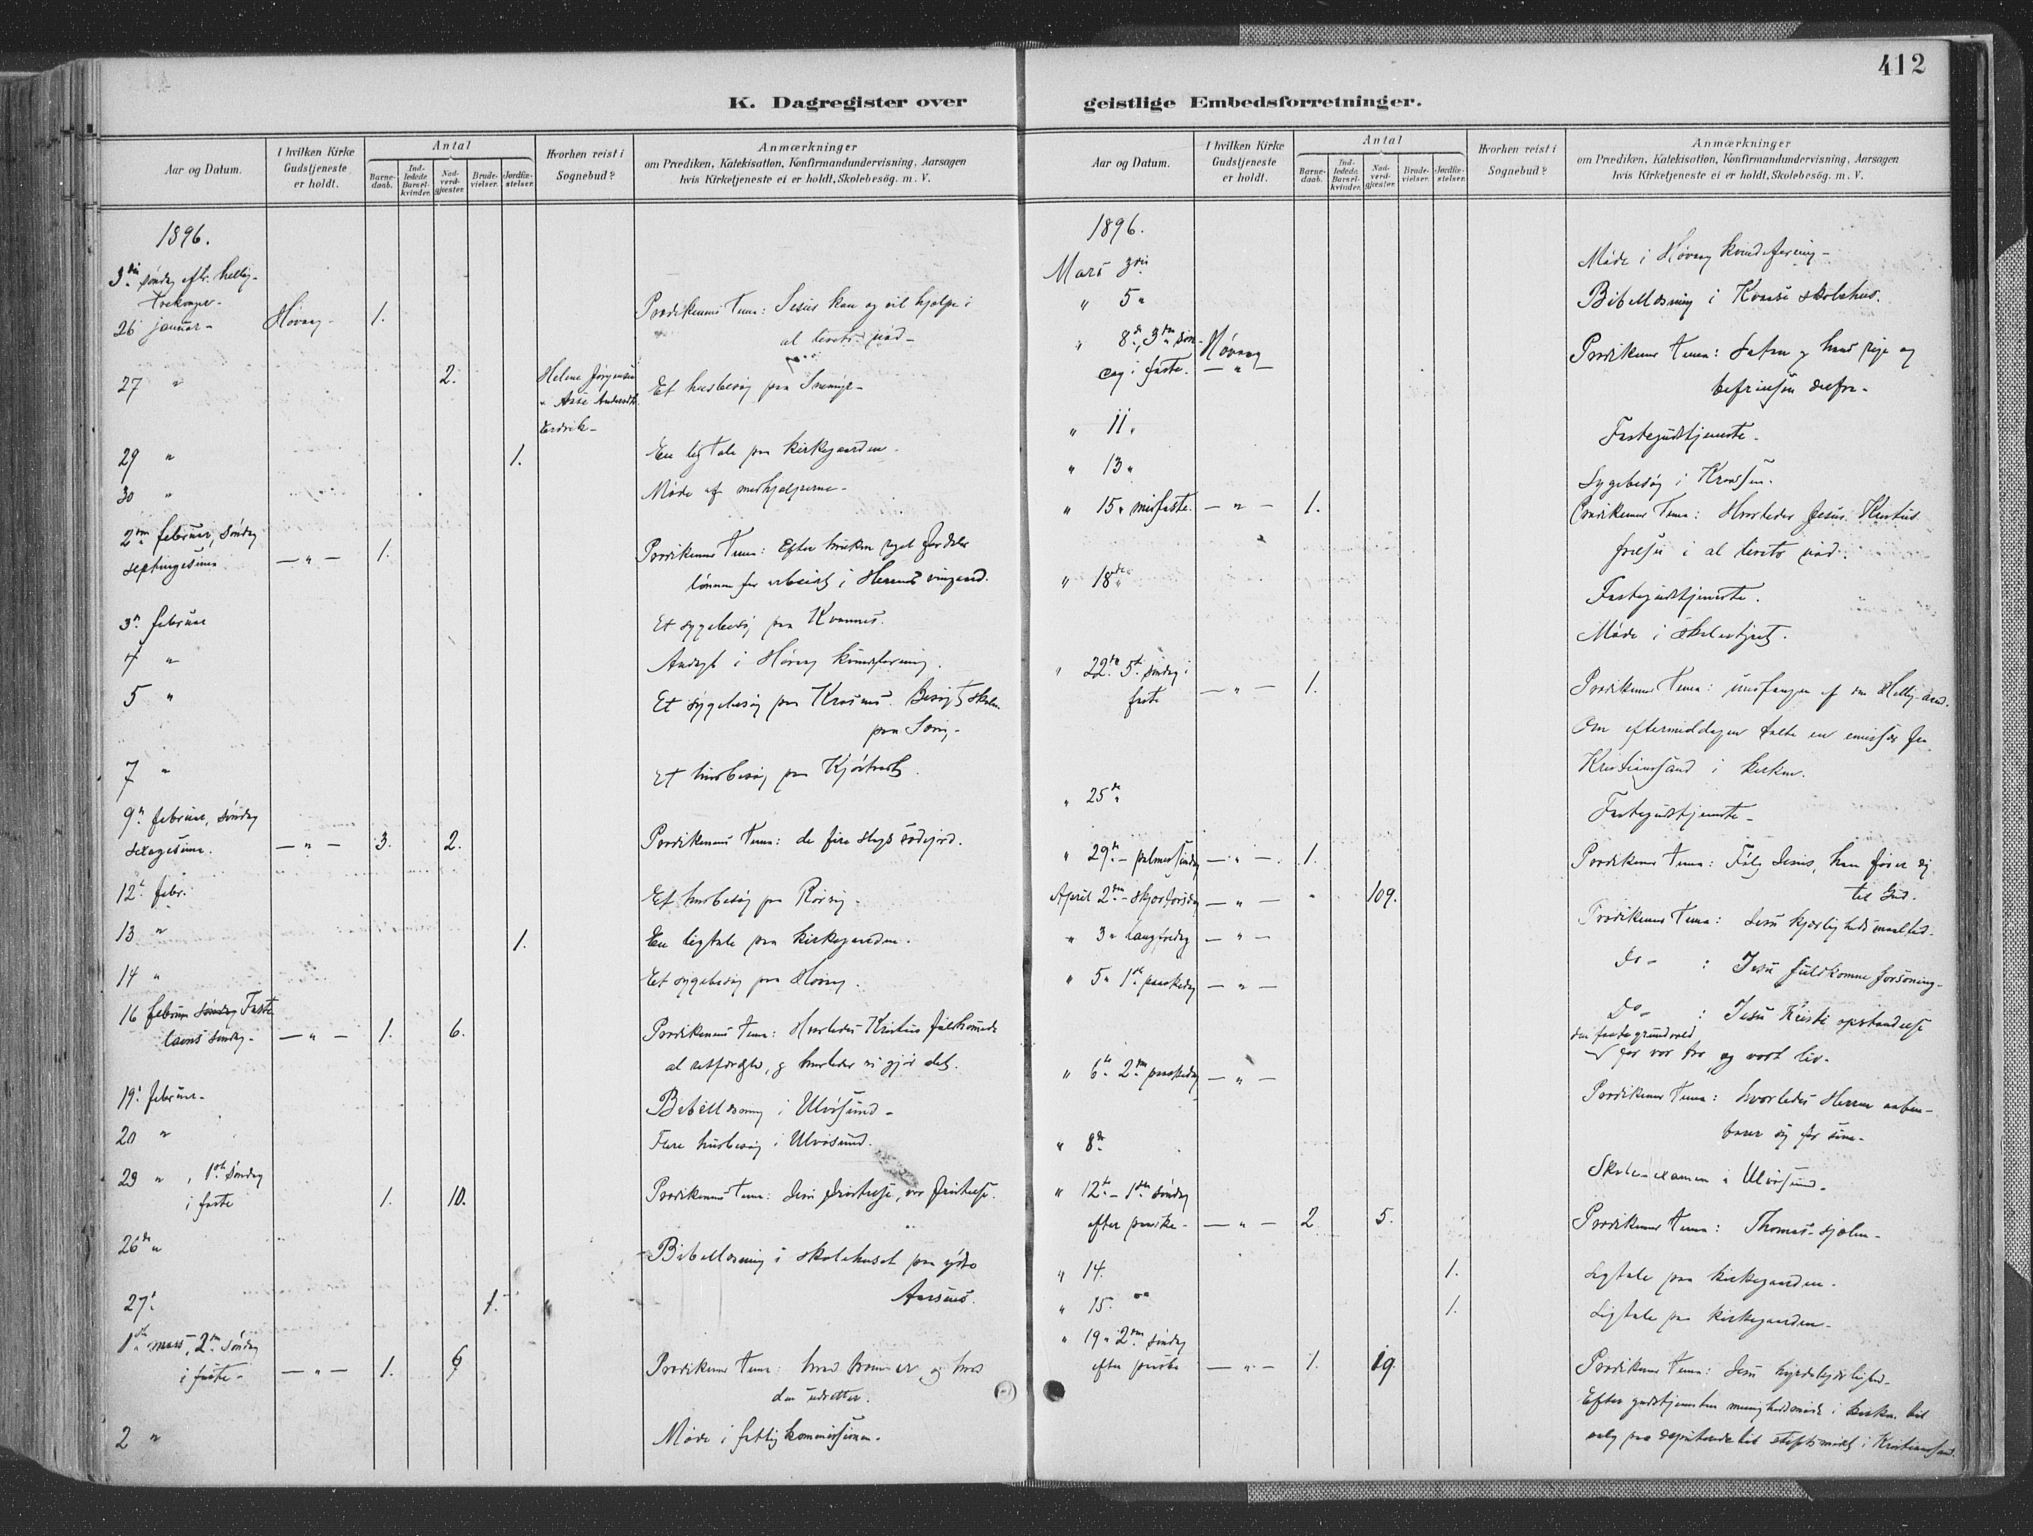 412
K. Dagregister over
Aar og Datum.
I hvilken Kirke
Gudstjeneste
er holdt.
Antal
Barne-
daab.
Ind-
ledede
Barsel-
kvinder.
Nad-
verd-
gjæster.
Brude-
vielser.
Jordfæ-
stelser.
Hvorhen reist i
Sognebud?
Anmærkninger
om Prædiken, Katekisation, Konfirmandundervisning, Aarsagen
hvis Kirketjeneste ei er holdt, Skolebesög. m. V.
1896.
3die søndag eft. hellig-
trekonger-
26 januar - Høvaag - 1. Prædikenens Tema: Jesus kan og vil hjælpe i
al livets nød -
27 " 2. Helene Jørgensen
Et husbesøg paa
29 " 1. En ligtale paa kirkegaarden.
30 " Møde af medhjælperne -
2den februar, søndag
septuagesima - " - 1. Prædikenens Tema: Efter hvilken regel fordeler
lønnen for arbeidet i Herrens vingaard.
3die februar Et sygebesøg paa Kvannes.
4 " Andagt i Høvaag kvindeforening.
5 " Et sygebesøg paa Besøgt skolen
paa
7 " Et husbesøg paa
9de februar, søndag
sexagesima. - " - 3. 2. Prædikenens Tema: de fire slags sædejord.
12te febr. Et husbesøg paa
13 " 1. En ligtale paa kirkegaarden.
14 " Et sygebesøg paa Høvaag.
16 februar søndag Faste-
lavns søndag - - " - 1. 6. Prædikenens Tema: Hvorledes Kristus fuldkomede
al retfærdighed, og hvorledes vi gjør det.
19. februar - Bibellæsning i Ulvøsund -
20 " Flere husbesøg i Ulvøsund.
23 " , 1ste søndag
i faste 1. 10. Prædikenens Tema: Jesu fristelse, vor fristelse.
26de " Bibellæsning i skolehuset paa ydre
Aarsnes.
27. 1.
1ste mars, 2den søndag
i faste - - " - 1. 6 Prædikenens Tema: hvad er, og hvad
den udretter.
2 " Møde i fattigkommissionen.
geistlige Embedsforretninger.
Aar og Datum.
I hvilken Kirke
Gudstjeneste
er holdt.
Antal
Barne-
daab.
Ind-
ledede
Barsel-
kvinder.
Nad-
verd-
gjæster.
Brude-
vielser.
Jordfæ-
stelser.
Hvorhen reist i
Sognebud?
Anmærkninger
om Prædiken, Katekisation, Konfirmandundervisning, Aarsagen
hvis Kirketjeneste ei er holdt, Skolebesög. m. V.
1896.
Mars 3die Møde i Høvaag kvindeforening -
" 5 " Bibellæsning i Kvaase skolehus.
" 8de, 3die søn- Høvaag
dag i faste. - " - Prædikenens Tema: Satan og hans rige og
befrielsen derfra -
" 11 " Fastegudstjeneste -
" 13 " Sygebesøg i
" 15 " midfaste. - " - 1. Prædikenens Tema: Hvorledes Jesus Kristus
frelser i al livets nød.
" 18de " Fastegudstjeneste.
Møde i skolestyret.
" 22de 5te søndag i
faste - " - 1. Prædikenens Tema: undfangen af den Hellig-aand.
Om eftermiddagen talte en emissær fra
Kristianssand i kirken.
" 25de " Fastegudstjeneste -
" 29de - palmesøndag - " - 1. Prædikenens Tema: Følg Jesus, han fører dig
til Gud.
April 2den - skjærtorsdag - " - 109. Prædikenens Tema: Jesu kjærlighedsmaaltid -
" 3 " langfredag - " - do - : Jesu fuldkomne forsoning -
" 5 " 1ste paaskedag - " - Do - : Jesu Kristi opstandelse
den faste grundvold
for vor tro og vort liv -
" 6te 2den paaskedag - " - Prædikenens Tema: hvorledes Herren aaben-
barer sig for sine -
" 8de Skole-examen i Ulvøsund -
" 12te - 1ste søndag
efter paaske - - " - 2 5. Prædikenens Tema: Thomas-sjælen -
" 14. 1. Ligtale paa kirkegaarden -
" 15. 1. Ligtale paa kirkegaarden -
" 19 " 2den søndag
efter paaske - " - 1. 19. Prædikenens Tema: Jesu
Efter gudstjenesten menighedsmøde i kirken til
valg paa deputerede til stiftsmødet i Kristianssand.